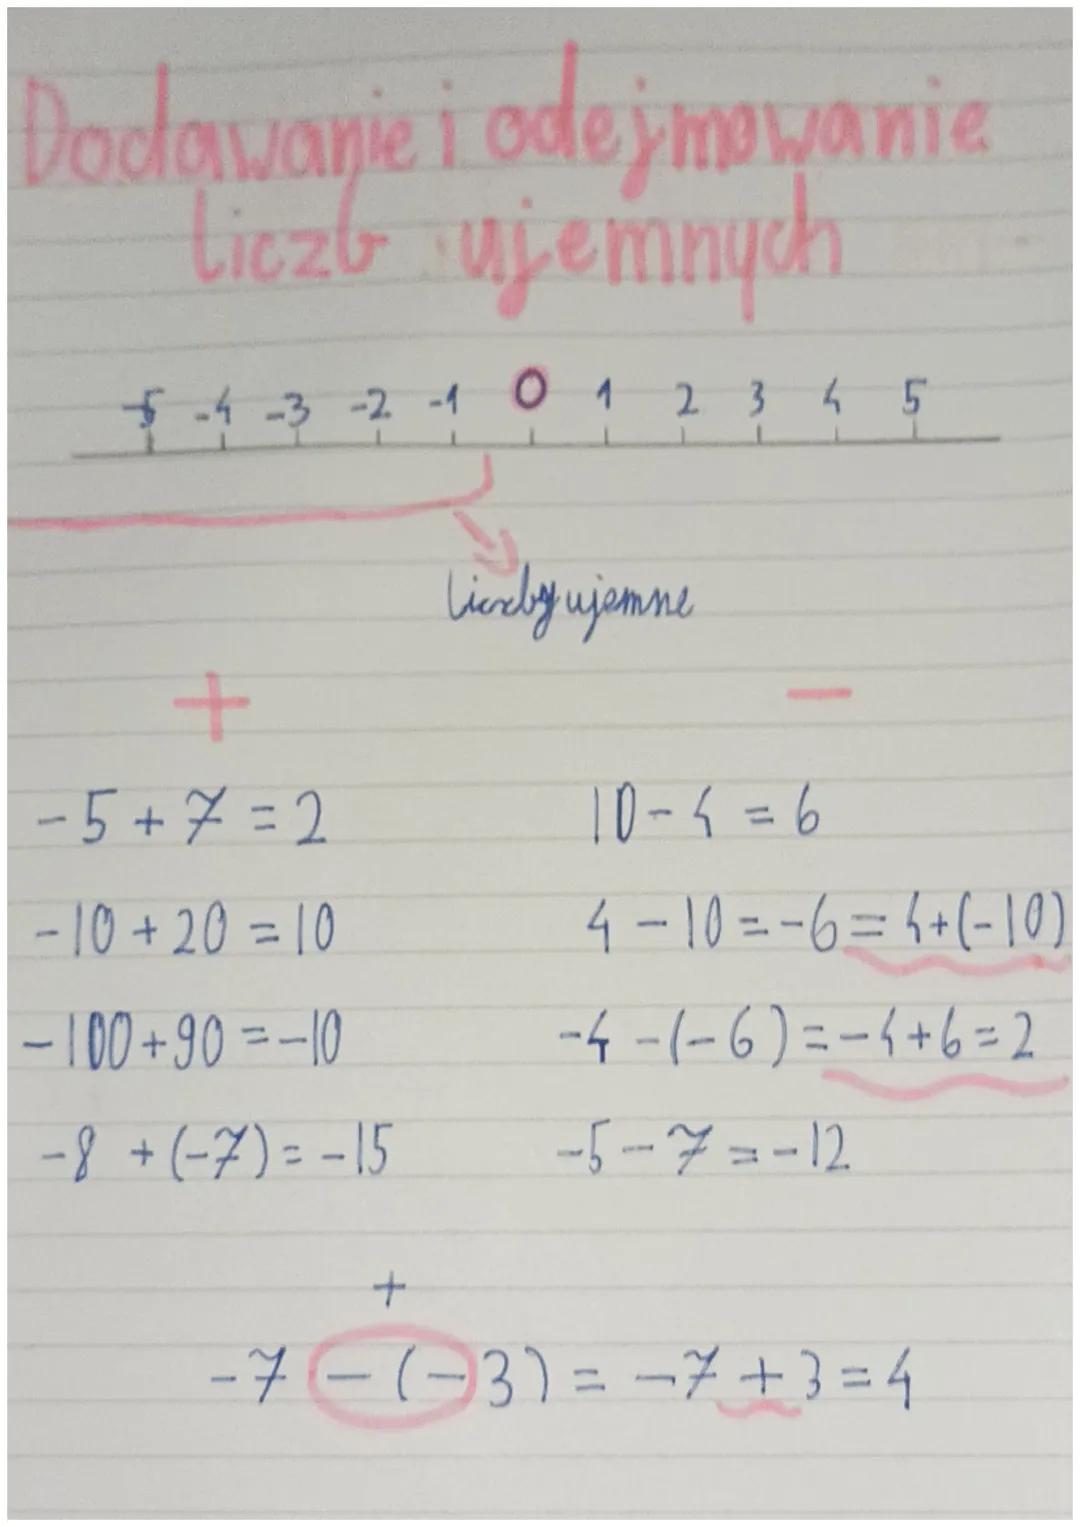 Dodawanie i odejmowanie
liczb ujemnych
-5 -4 -3 -2 -1 0 1 2 3 4 5
liczby ujemne
+ −
-5+7=2 10-4=6
-10+20=10 4-10=-6=4+(-10)
-100+90=-10 -4-(-6)=-4+6=2
-8+(-7)=-15 -5-7=-12
+
-7-(-3)=-7+3=4